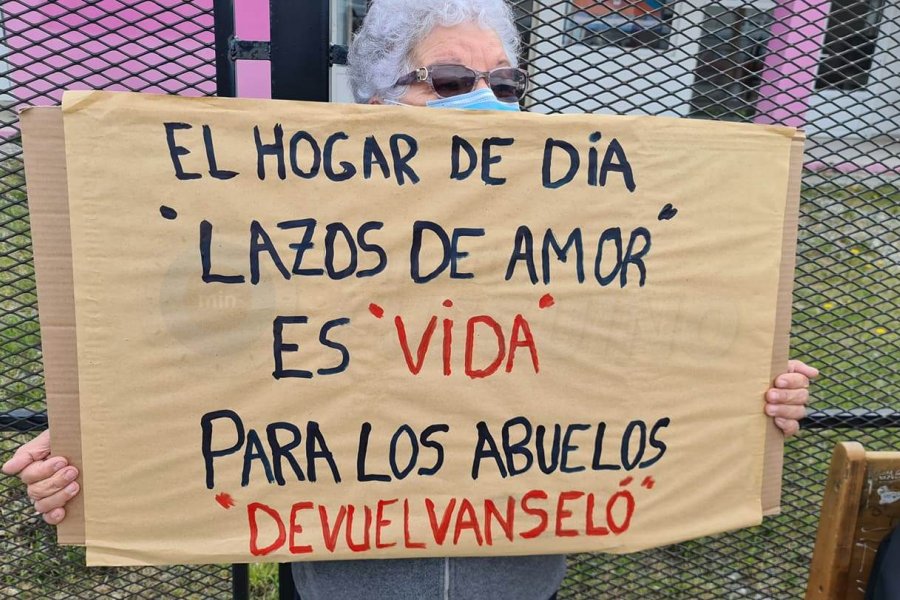 EL HOGAR DE DíA
"LAZOS DE AMOR"
ES "ViDA"
PARA LOS ABUELOS
"DEVUELVANSELÓ"